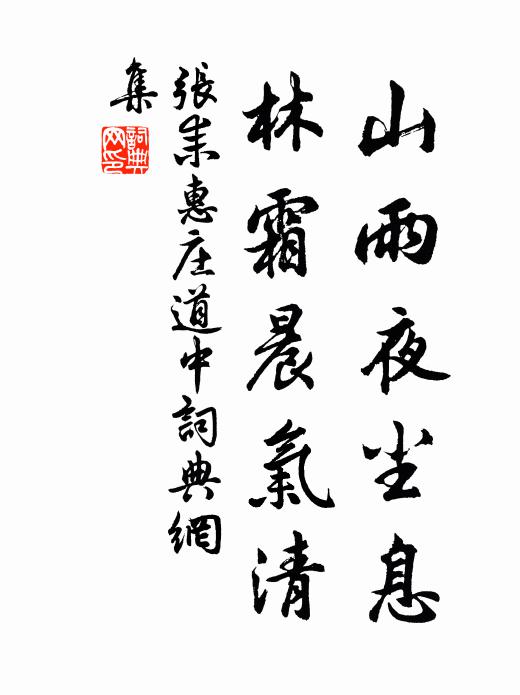 山雨夜尘息
林霜晨氣清
張耒惠庄道中詞典網
集
詞典
网印